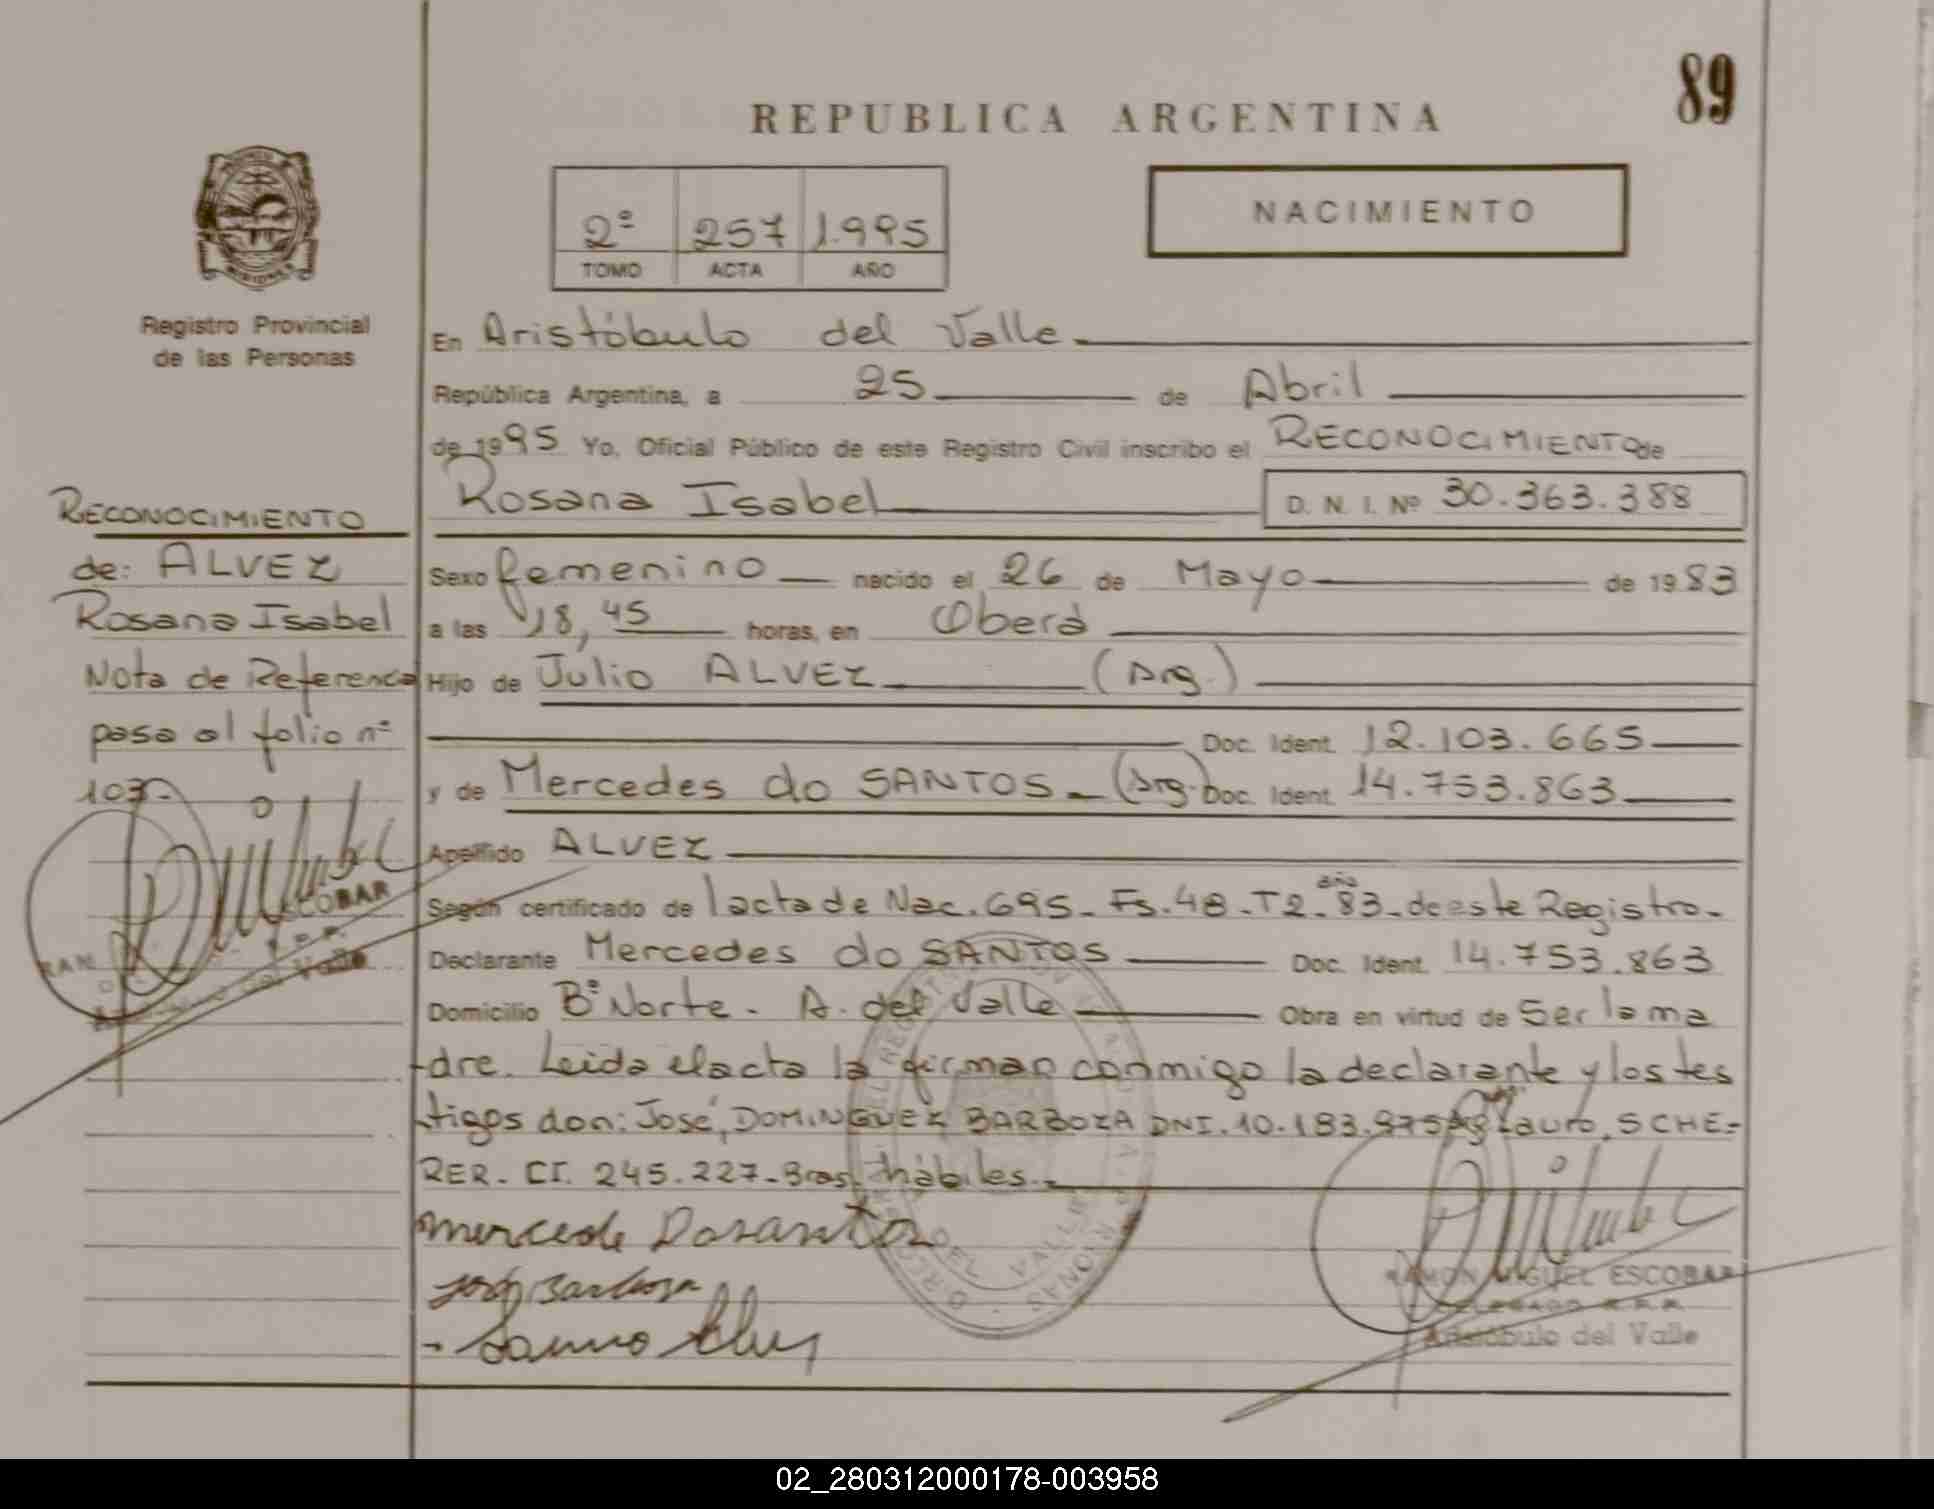 89
REPUBLICA ARGENTINA
NACIMIENTO
2º 257 1.995
TOMO ACTA AÑO
MISIONES
Registro Provincial
de las Personas
En Aristóbulo del Valle
República Argentina, a 25 de Abril
de 1995 Yo, Oficial Público de este Registro Civil inscribo el RECONOCIMIENTO de
Rosana Isabel D. N. I. Nº 30.363.388
RECONOCIMIENTO
de: ALVEZ
Rosana Isabel
Nota de Referencia
pasa al folio nº
103
Sexo femenino nacido el 26 de Mayo de 1983
a las 18,45 horas, en Oberá
Hijo de Julio ALVEZ (Arg.)
Doc. Ident. 12.103.665
y de Mercedes do SANTOS - (Arg.) Doc. Ident. 14.753.863
Apellido ALVEZ
Según certificado de lactade Nac. 695 - Fs. 48 - T2 - año 83 - de este Registro -
Declarante Mercedes do SANTOS Doc. Ident. 14.753.863
Domicilio Bº Norte - A. del Valle Obra en virtud de Ser la ma
dre. Leida el acta la firman conmigo la declarante y los tes
tigos don: José, DOMINGUEZ BARBOZA DNI. 10.183.975 Lauro, SCHE-
RER - CI. 245.227 - Bras. hábiles. -
mercede Dosanto
RAMON MIGUEL ESCOBAR
DELEGADO R.P.P.
Aristóbulo del Valle
ESCOBAR
del Valle
02_280312000178-003958